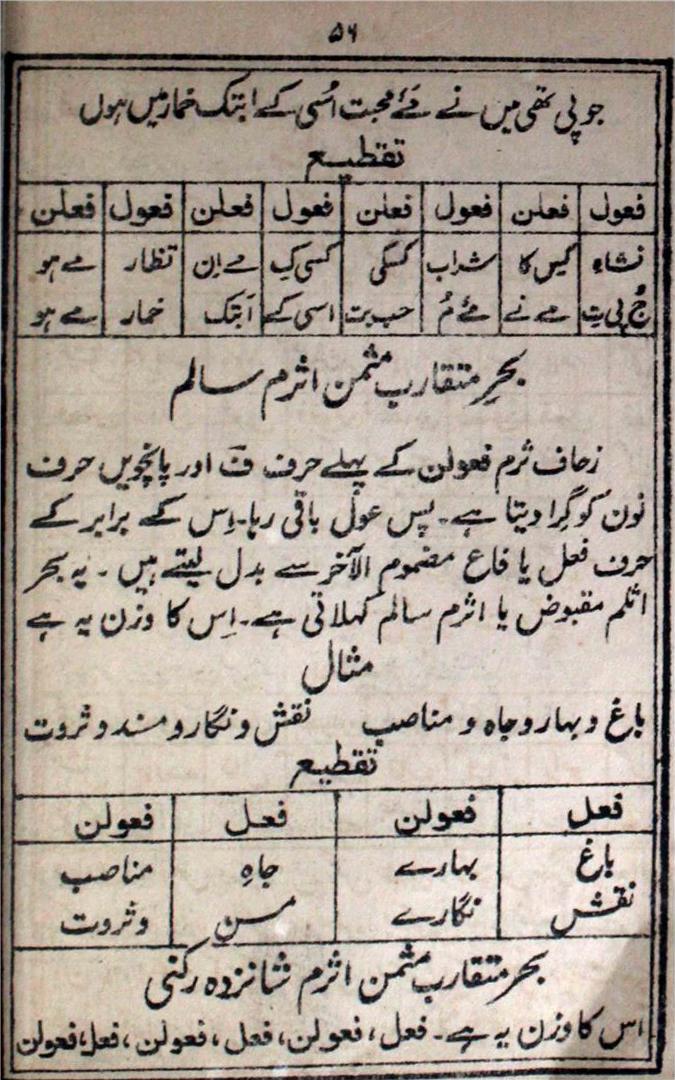 ۵۶
جو پی تھی میں نے مئے محبت اُسی کے ابتک خمار میں ہوں
تقطیع
فعول فعلن فعول فعلن فعول فعلن فعول فعلن
نشاہِ کیس کا شراب کسکی کسی کِ مے اِن تظار مے ہو
جُ پی تِ مے نے مئے مُ حب بت اسی کے اَبتک خمار مے ہو
بحرِ متقارب مثمن اثرم سالم
زحاف ثرم فعولن کے پہلے حرف فَ اور پانچویں حرف
نون کو گرا دیتا ہے۔ پس عولُ باقی رہا۔ اِس کے برابر کے
حرف فعل یا فاع مضموم الآخر سے بدل لیتے ہیں۔ یہ بحر
اثلم مقبوض یا اثرم سالم کہلاتی ہے۔ اِس کا وزن یہ ہے
مثال
باغ و بہار و جاہ و مناصب نقش و نگار و مسند و ثروت
تقطیع
فعل فعولن فعل فعولن
باغ بہارے جاہِ مناصب
نقش نگارے مسنِ وثروت
بحر متقارب مثمن اثرم شانزدہ رکنی
اس کا وزن یہ ہے۔ فعل، فعولن، فعل، فعولن، فعل، فعولن